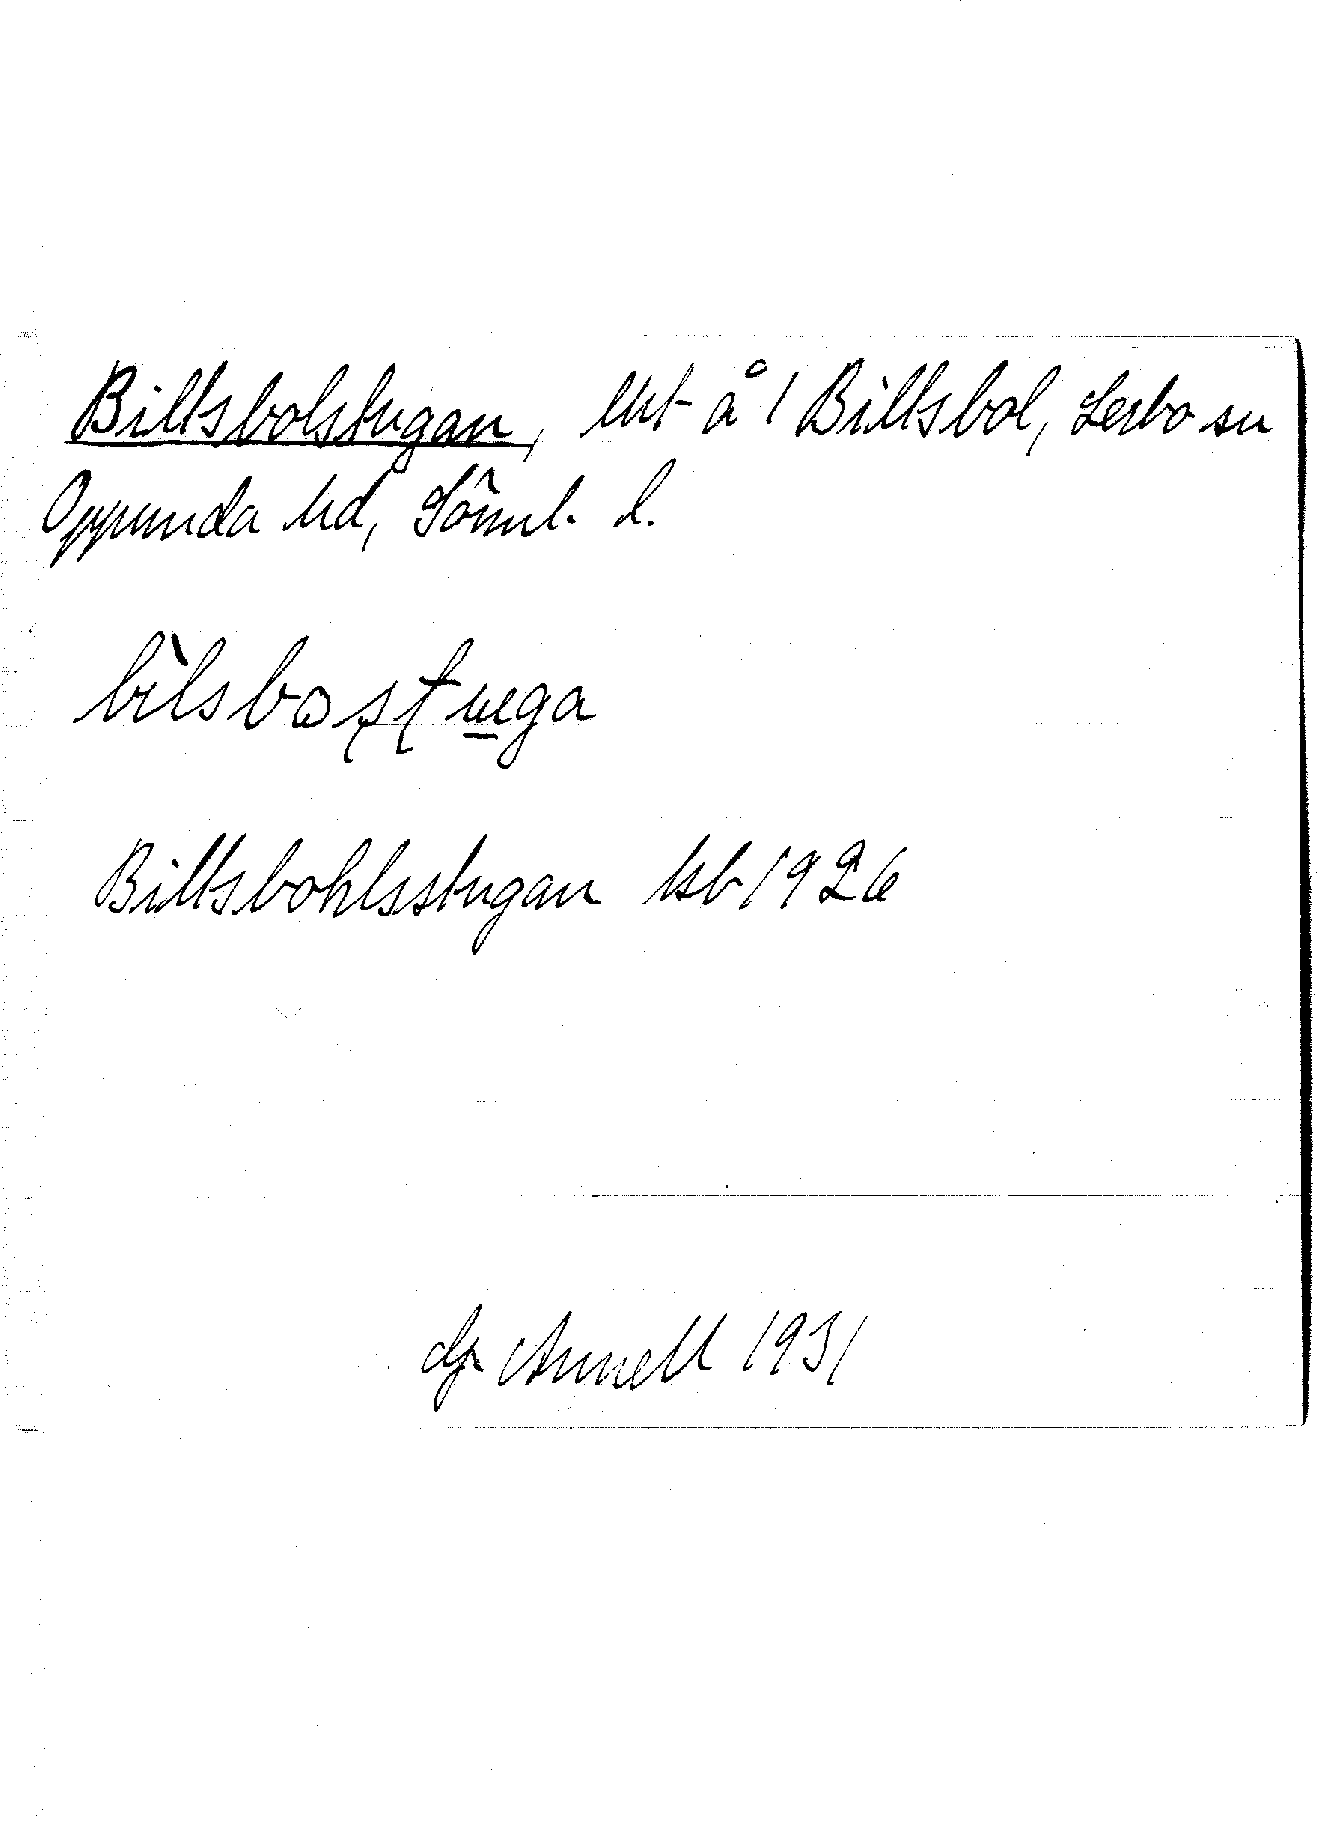 Billsbolstugan, lht å 1 Billsbol, Lerbo sn
Oppunda hd, Söml. l.
bilsbosstuga
Billsbohlsstugan jsb 1926
dp Annell 1931